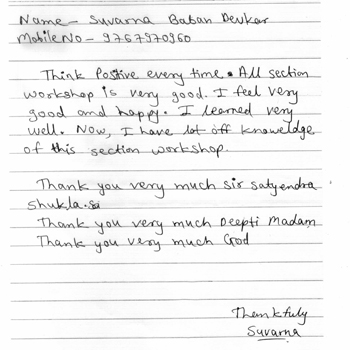 Name - Suvarna Baban Devkar
Mobile No - 9767970960
Think Positive every time. All section
workshop is very good. I feel very
good and happy. I learned very
well. Now, I have lot off knoweldge
of this section workshop.
Thank you very much Sir Satyendra
Shukla.
Thank you very much Deepti Madam
Thank you very much God
Thenkfuly
Suvarna